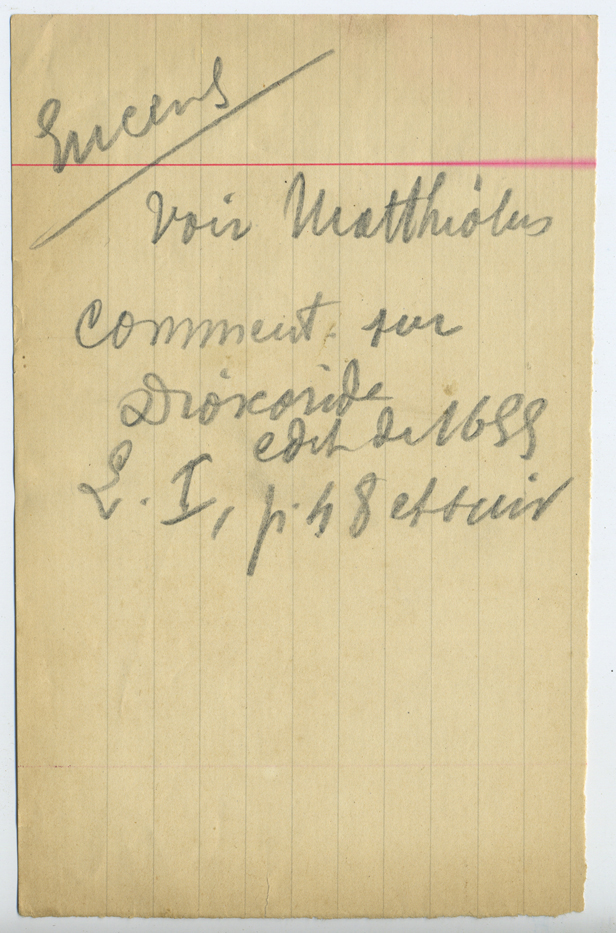 Encens
Voir Matthiolus
comment. sur
Dioscoride
edit de 1655
L. I, p. 48 et suiv